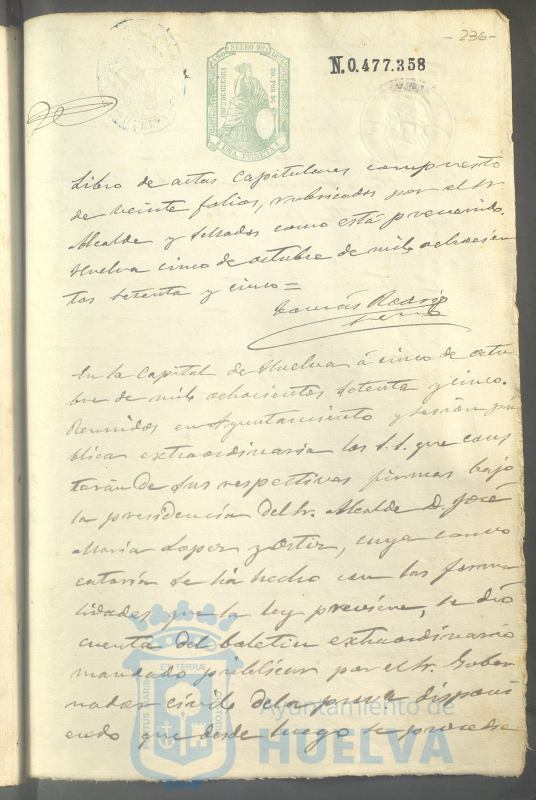 -236-
AÑO SELLO 10º 1875
IMPTO DE GUERRA
UNA PESETA
N.0.477.358
Libro de actas capitulares compuesto
de veinte folios, rubricados por el Sr.
Alcalde y sellados como está prevenido.
Huelva cinco de octubre de mil ochocien
tos setenta y cinco=
Tomás Rodrig
En la Capital de Huelva á cinco de octu
bre de mil ochocientos setenta y cinco.
Reunidos en Ayuntamiento y sesión pú
blica extraordinaria los S.S. que cons
tarán de sus respectivas firmas bajo
la presidencia del Sr. Alcalde D. José
María Lopez y Ortiz, cuya convo
catoria se ha hecho con las forma
lidades que la ley previene, se dió
cuenta del boletin extraordinario
mandado publicar por el Sr. Gober
nador civil de la prova disponi
endo que desde luego se proceda
PORTUS MARIS
ET TERRÆ
CUSTODIA
Ayuntamiento de
HUELVA